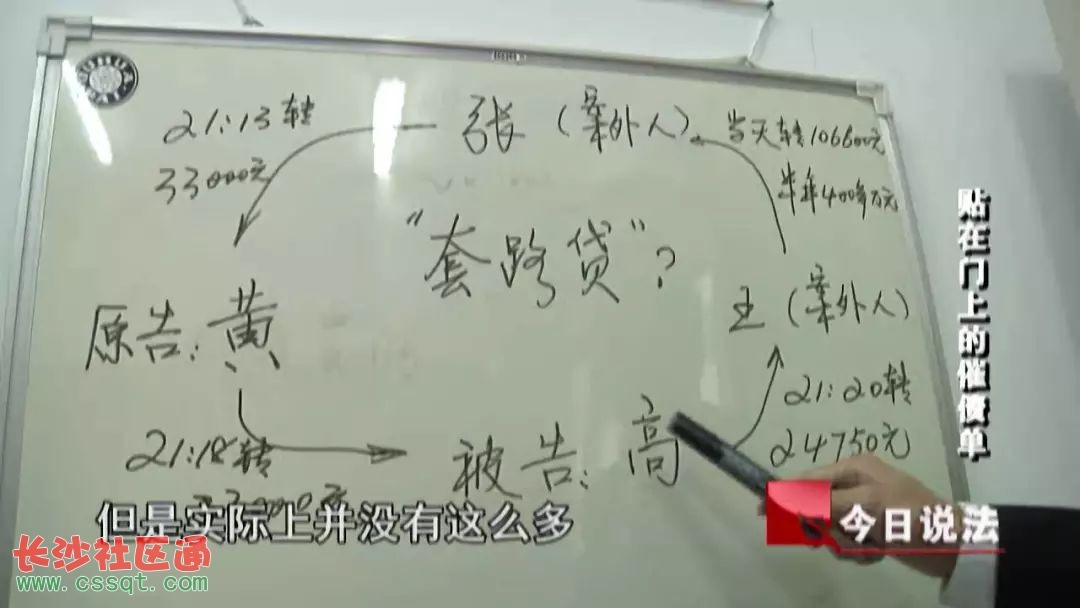 21:13转
33000元
张（案外人）
当天转106600元
半年400多万元
"套路贷"?
原告:黄
王（案外人）
21:18转
21:20转
24750元
被告:高
贴在门上的催债单
但是实际上并没有这么多
今日说法
长沙社区通
www.cssqt.com